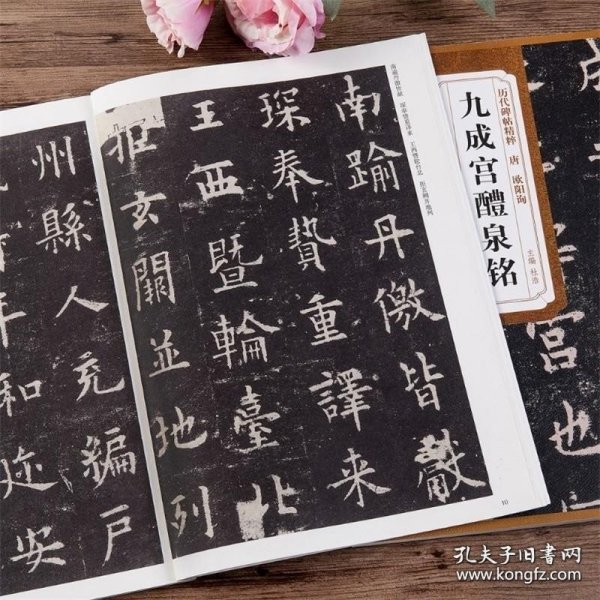 南踰丹儌皆獻
琛奉贄重譯來
王西暨輪臺北
拒玄闕並地列
州縣人充編戶
年和迩安
南逾丹徼皆献 琛奉贽重译来 王西暨轮台北 拒玄阙并地列
10
历代碑帖精粹 唐 欧阳询
九成宫醴泉铭
主编 杜浩
宫也
孔夫子旧书网
www.kongfz.com